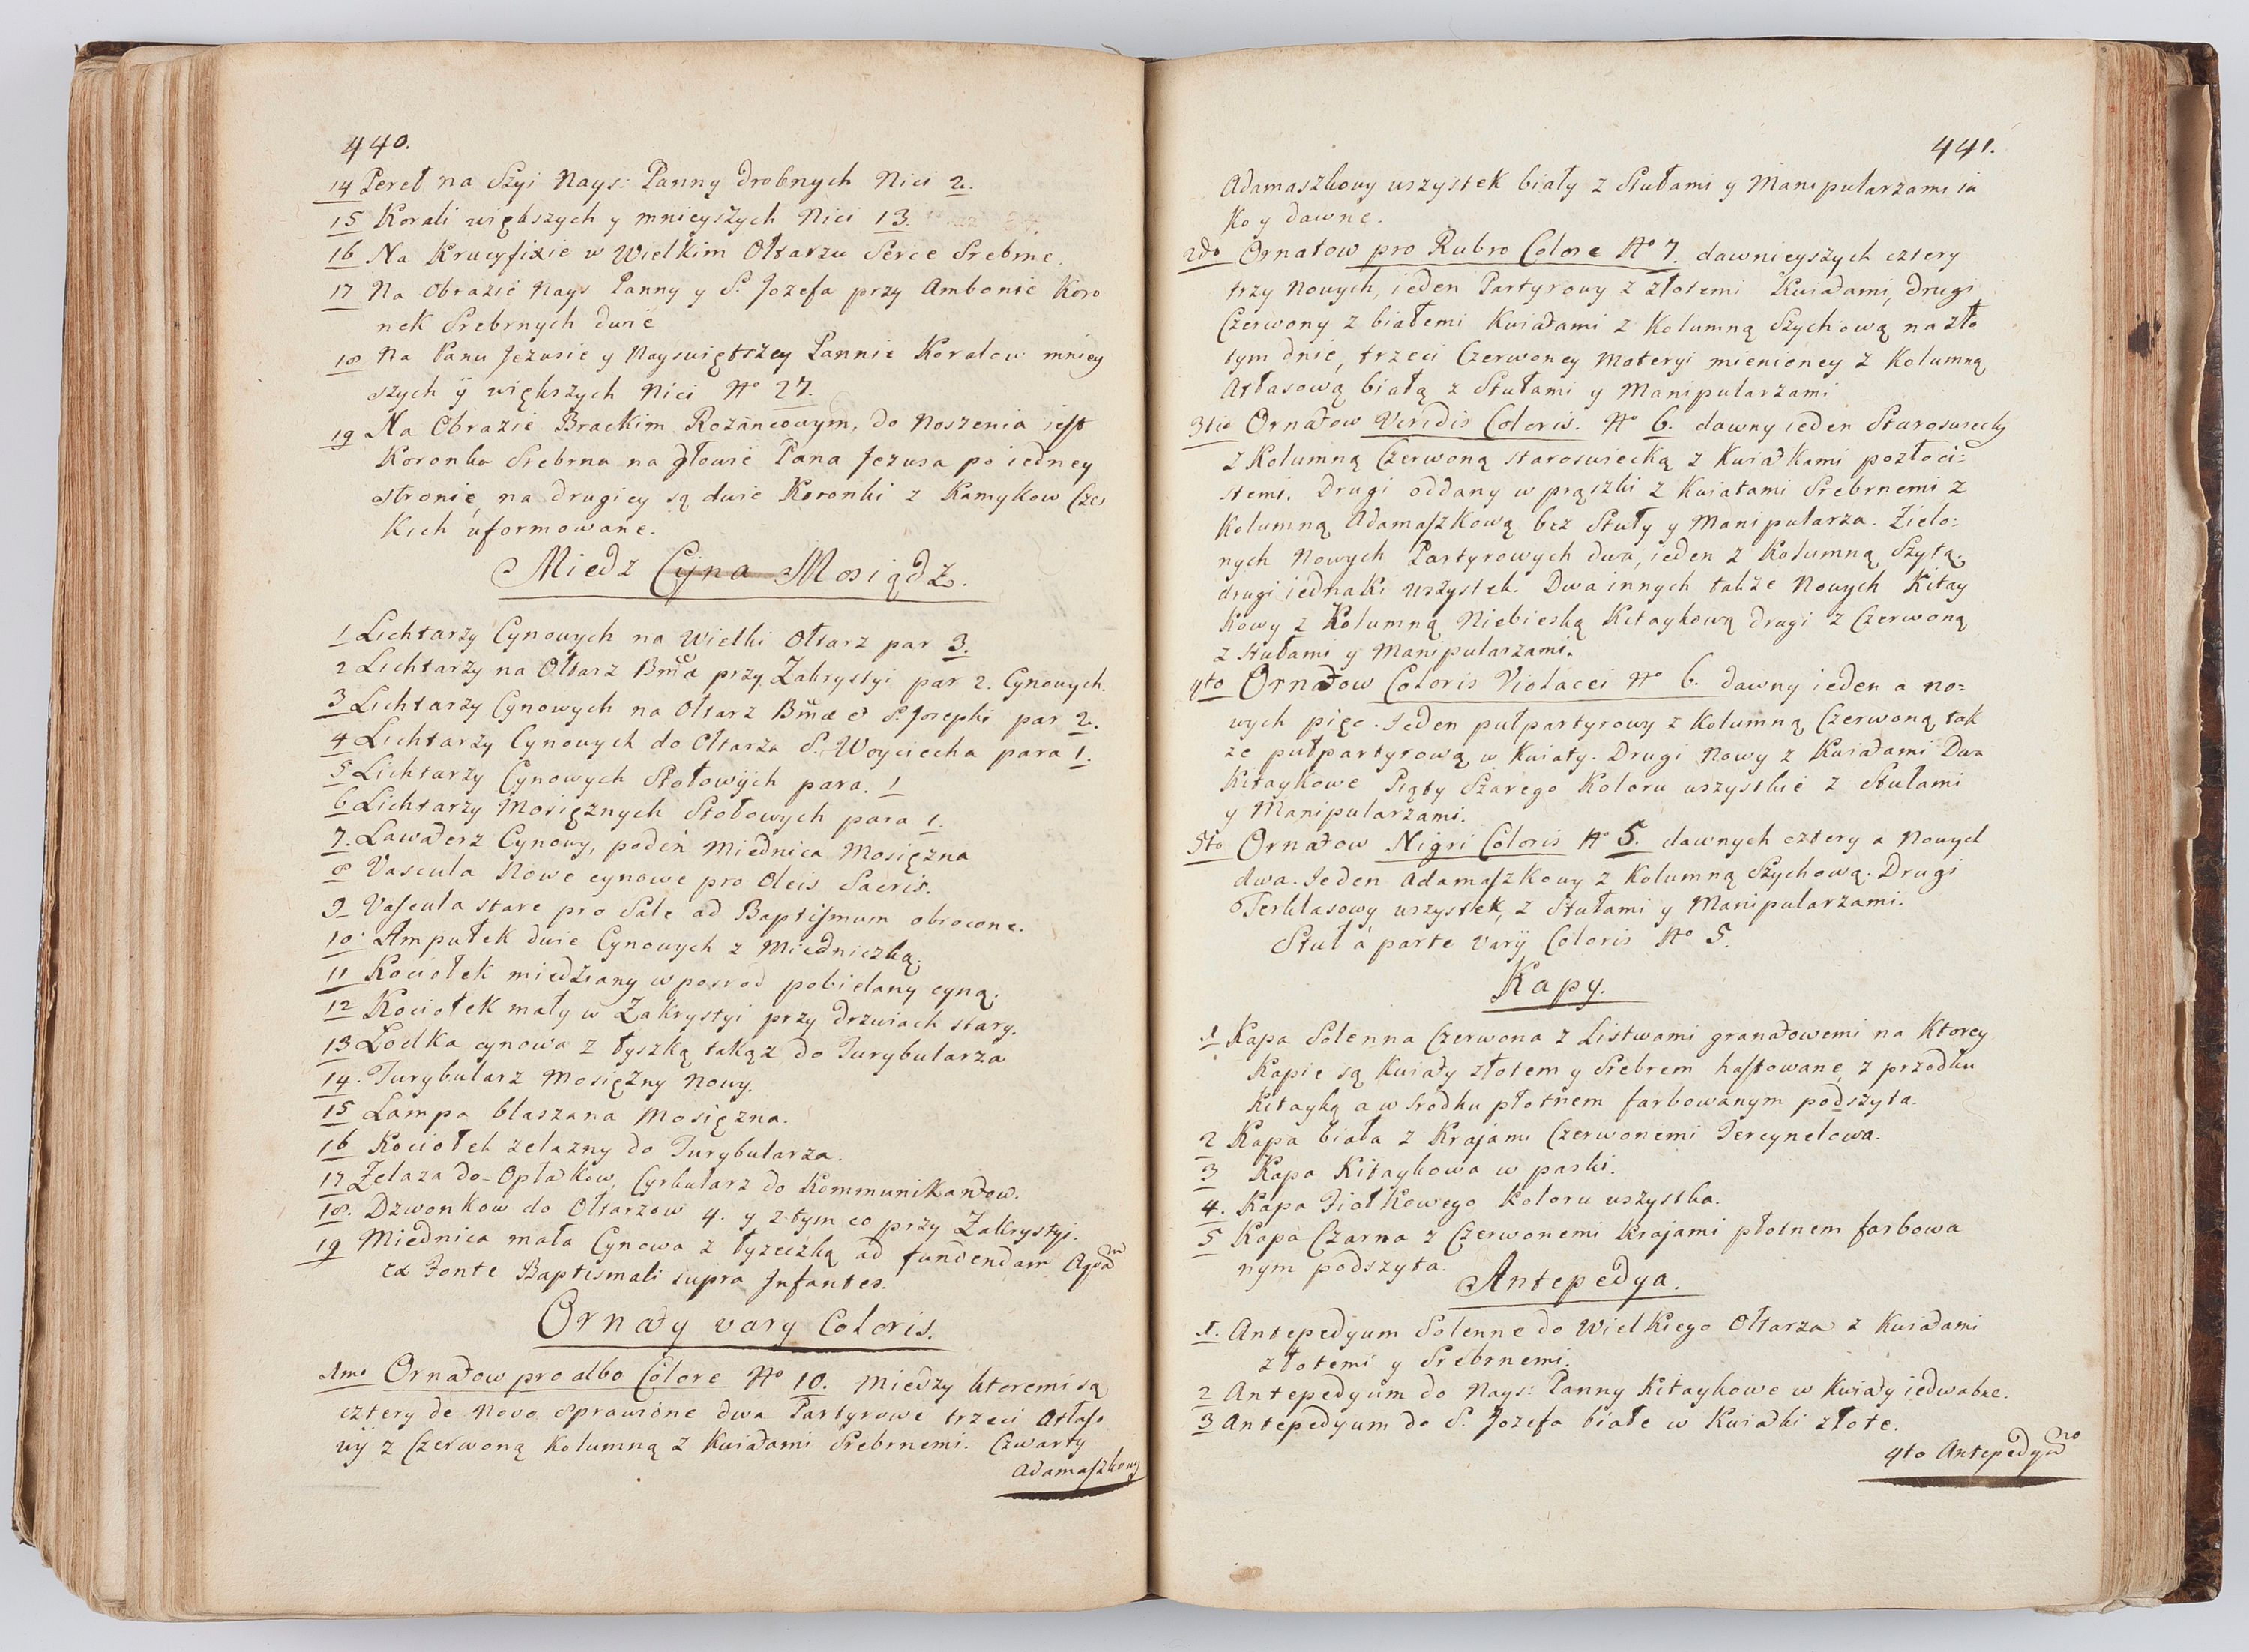 440.
14 Pereł na Szyi Nays: Panny drobnych Nici 2.
15 Korali większych y mnieyszych Nici 13.
16 Na Krucyfixie w Wielkim Ołtarzu Serce Srebrne.
17 Na Obrazie Nays Panny y S. Jozefa przy Ambonie Koro
nek Srebrnych dwie
18 Na Panu Jezusie y Nayswiętszey Pannie Koralow mniey
szych ÿ większych Nici No 27.
19 Na Obrazie Brackim Rozancowym, do Noszenia iest
Koronka Srebrna na głowie Pana Jezusa po iedney
stronie, na drugiey są dwie Koronki z Kamykow Czes
Kich uformowane.
Miedz Cyna Mosiądz.
1 Lichtarzy Cynowych na Wielki Ołtarz par 3.
2 Lichtarzy na Ołtarz Bmæ przy Zakrystyi par 2. Cynowych.
3 Lichtarzy Cynowych na Oltarz Bmæ et S. Josephi par 2.
4 Lichtarzy Cynowych do Ołtarza S. Woyciecha para 1.
5 Lichtarzy Cynowych Stołowÿch para. 1
6 Lichtarzy Mosięznych Stołowych para 1.
7. Lawaterz Cynowy, podeń Miednica Mosięzna
8 Vascula Nowe cynowe pro Oleis Sacris.
9 Vascula stare pro Sale ad Baptismum obrocone.
10. Ampułek dwie Cynowych z Miedniczką.
11 Kociołek miedziany w posrod pobielany cyną.
12 Kociołek mały w Zakrystyi przy drzwiach stary.
13 Lodka cynowa z łyszką takąż do Turybularza
14. Turybularz Mosięzny Nowy.
15 Lampa blaszana Mosięzna.
16 Kociołek zelazny do Turybularza.
17 Żelaza do Opłatkow, Cyrkularz do Kommunikantow.
18. Dzwonkow do Ołtarzow 4. y z tym co przy Zakrystyi.
19 Miednica mała Cynowa z łyzeczką ad fundendam Aqua
ex Fonte Baptismali supra Infantes.
Ornaty vary Coloris.
1mo Ornatow pro albo Colore No 10. Miedzy ktoremi są
cztery de Novo Sprawione dwa Partyrowe trzeci Atłaso
wÿ z Czerwoną Kolumną z Kwiatami Srebrnemi. Czwarty
Adamaszkowy
441.
Adamaszkowy wszystek biały z Stułami y Manipularzami ia
Ko y dawne.
2do Ornatow pro Rubro Colore No 7. dawnieyszych cztery
trzy Nowych, ieden Partyrowy z złotemi Kwiatami, drugi
Czerwony z białemi Kwiatami z Kolumną Szychową na zło
tym dnie, trzeci Czerwoney Materyi mienioney z Kolumną
Atłasową białą z Stułami y Manipularzami
3tio Ornatow Viridis Coloris. No 6. dawny ieden Staroswiecky
z Kolumną Czerwoną staroswiecką z Kwiatkami pozłoci=
stemi. Drugi oddany w prąszki z Kwiatami Srebrnemi z
Kolumną Adamaszkową bez Stuły y Manipularza. Zielo=
nych Nowych Partyrowych dwa, ieden z Kolumną Szytą,
drugi iednaki wszystek. Dwa innych takze Nowych Kitay
kowy z Kolumną Niebieską Kitaykową drugi z Czerwoną
z Stułami y Manipularzami.
4to Ornatow Coloris Violacei No 6. dawny ieden a no=
wych pięc. Jeden pułpartyrowy z Kolumną Czerwoną tak
ze pułpartyrową w Kwiaty. Drugi Nowy z Kwiatami Dwa
Kitaykowe Piąty Szarego Koloru wszystkie z Stułami
y Manipularzami.
5to Ornatow Nigri Coloris No 5. dawnych cztery a Nowych
dwa. Ieden Adamaszkowy z Kolumną Szychową. Drugi
Terklasowy wszystek, z Stułami y Manipularzami.
Stuł a parte varÿ Coloris No 5.
Kapy.
1 Kapa Solenna Czerwona z Listwami granatowemi na Ktorey
Kapie są Kwiaty złotem y Srebrem haftowane z przodku
Kitayką a w srodku płotnem farbowanym podszyta.
2 Kapa biała z Krajami Czerwonemi Tercynelowa.
3 Kapa Kitaykowa w paski.
4. Kapa Fiołkowego Koloru wszystka.
5 Kapa Czarna z Czerwonemi Krajami płotnem farbowa
nym podszyta.
Antepedya.
1. Antepedyum Solenne do Wielkiego Ołtarza z Kwiatami
złotemi y Srebrnemi.
2 Antepedyum do Nays: Panny Kitaykowe w Kwiaty iedwabne.
3 Antepedyum do S. Jozefa białe w Kwiatki złote.
4to Antepedyu